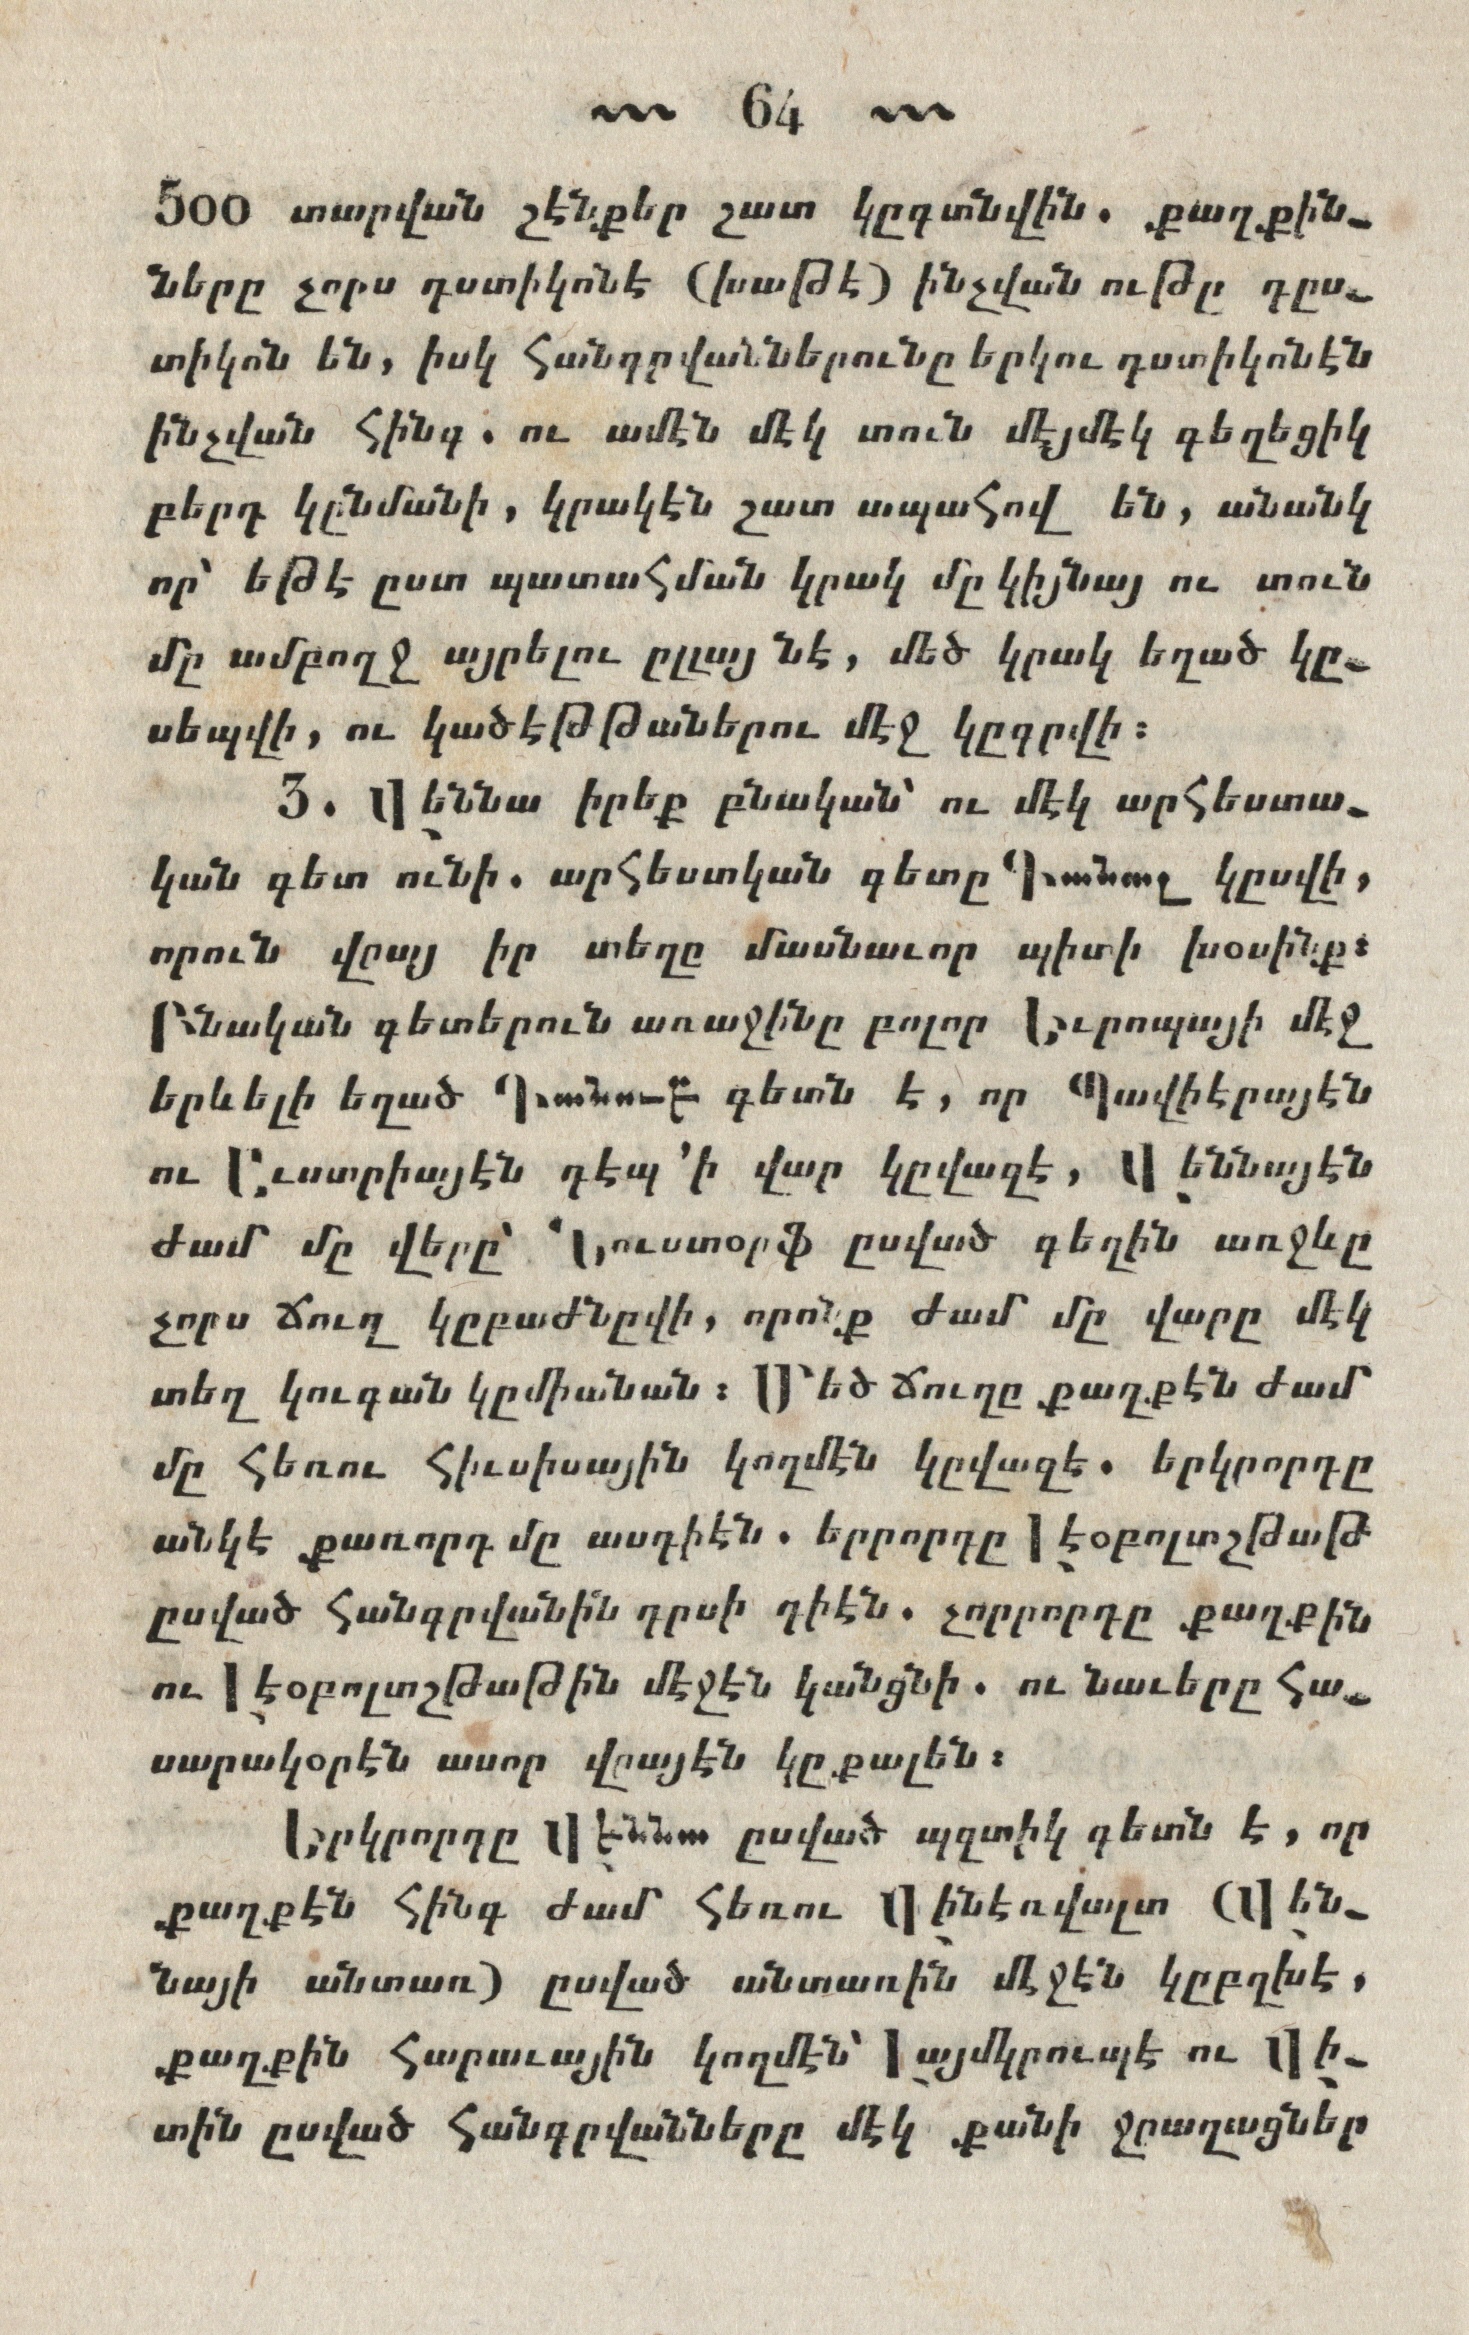 64
500 տարվան շէնքեր շատ կըգտնվին. քաղքին-
ները չորս դստիկոնէ (խաթէ) ինչվան ութը դըս-
տիկոն են, իսկ հանդըվաններունը երկու դստիկոնէն
ինչվան հինգ. ու ամէն մէկ տուն մէյմէկ գեղեցիկ
բերդ կընմանի, կրակէն շատ ապահով են, անանկ
որ՝ եթէ ըստ պատահման կրակ մը կիյնայ ու տուն
մը ամբողջ այրելու ըլլայ նէ, մեծ կրակ եղած կը-
սեպվի, ու կածէթթաներու մէջ կըգրվի։
3. Վեննա իրեք բնական՝ ու մէկ արհեստա-
կան գետ ունի. արհեստական գետը Դանալ կըսվի,
որուն վրայ իր տեղը մասնաւոր պիտի խօսինք։
Բնական գետերուն առաջինը բոլոր Եւրոպայի մէջ
երևելի եղած Դանուբ գետն է, որ Պավիէրայէն
ու Աւստրիայէն դէպ ՚ի վար կըվազէ, Վեննայէն
ժամ մը վերը՝ Նուստօրֆ ըսված գեղին առջևը
չորս ճուղ կըբաժնըվի, որոնք ժամ մը վարը մէկ
տեղ կուգան կըմիանան։ Մեծ ճուղը քաղքէն ժամ
մը հեռու հիւսիսային կողմէն կըվազէ. երկրորդը
անկէ քառորդ մը ասդիէն. երրորդը Լէօբոլտշթաթ
ըսված հանգրվանին դրսի դիէն. չորրորդը քաղքին
ու Լէօբոլտշթաթին մէջէն կանցնի. ու նաւերը հա-
սարակօրէն ասոր վրայէն կը քալեն։
Երկրորդը Վէննա ըսված պզտիկ գետն է, որ
քաղքէն հինգ ժամ հեռու Վինէռվալտ (Վեն-
նայի անտառ) ըսված անտառին մէջէն կըբղխէ,
քաղքին հարաւային կողմէն՝ Լայմկրուպէ ու Վի-
տին ըսված հանգրվանները մէկ քանի ջրաղացներ